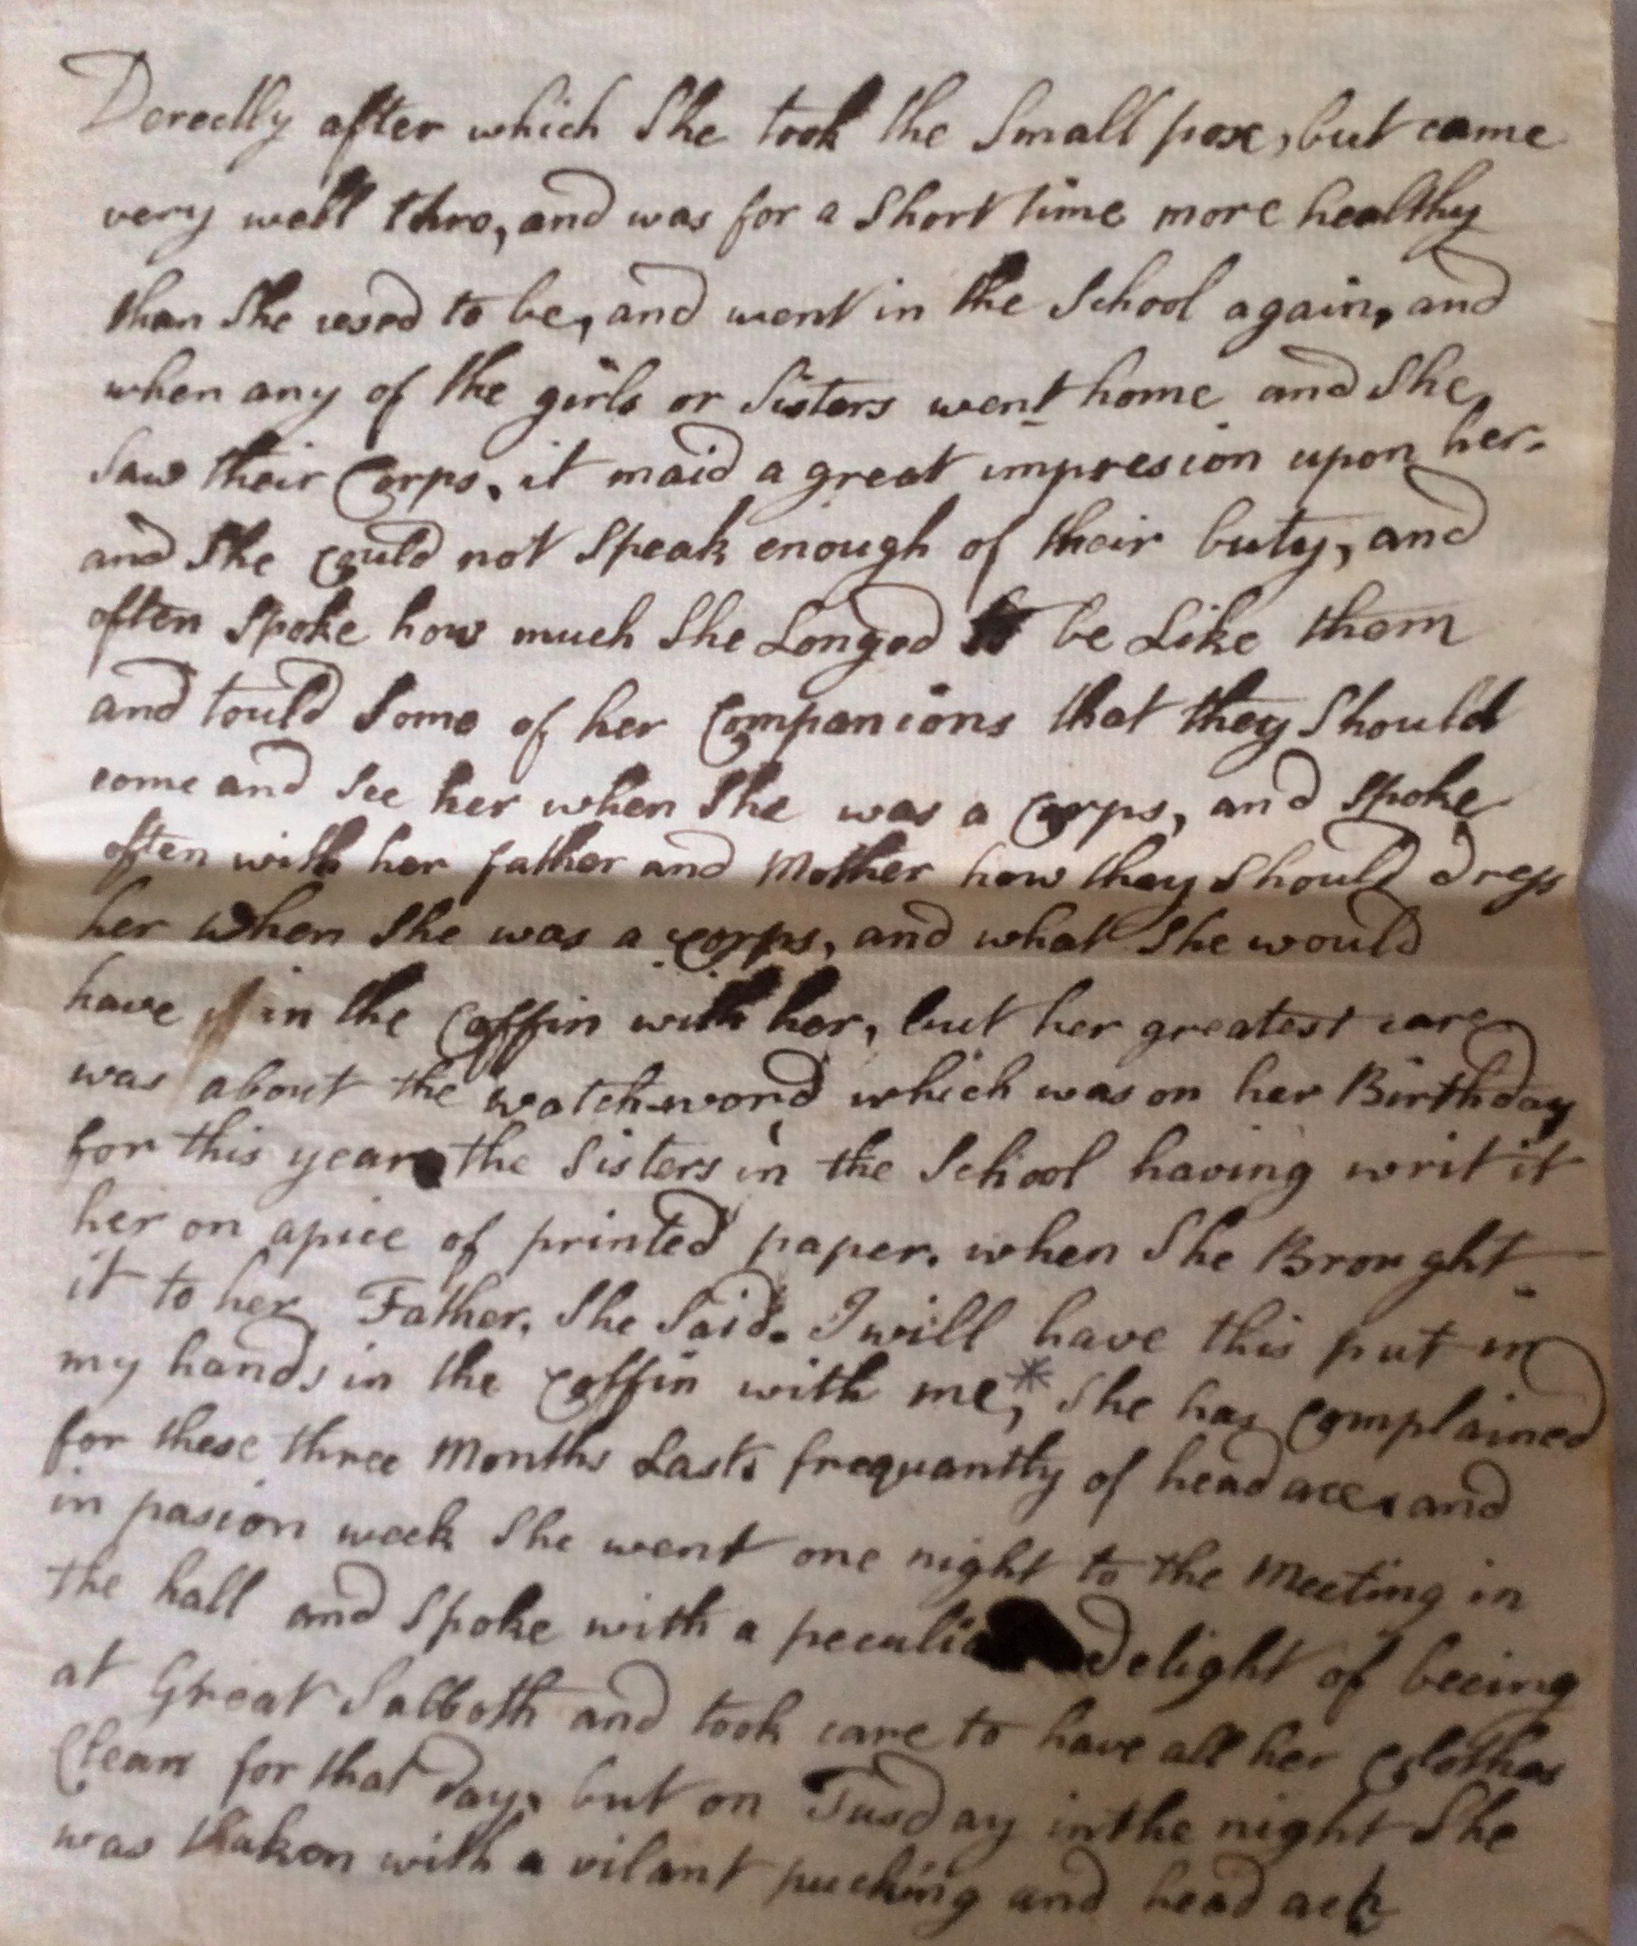 Derectly after which She took the Small pox, but came
very well thro, and was for a Short time more healthy
than She used to be, and went in the School again, and
when any of the girls or Sisters went home and She
Saw their Corps, it maid a great impresion upon her.
and She could not Speak enough of their buty, and
often Spoke how much She Longed to be Like them
and tould Some of her Companions that they Should
come and See her when She was a Corps, and Spoke
often with her father and Mother how they Should dress
her when She was a corps, and what She would
have in the Coffin with her, but her greatest care
was about the watch-word which was on her Birthday
for this year, the Sisters in the School having writ it
her on a pice of printed paper. when She Brought
it to her Father, She Said. I will have this put in
my hands in the Coffin with me,* She has complained
for these three Months Last, frequantly of head ace, and
in pasion week She went one night to the Meeting in
the hall and Spoke with a peculiar Delight of beeing
at Great Sabboth and took care to have all her Clothes
Clean for that day, but on Tusday in the night She
was thaken with a vilant pucking and head ack